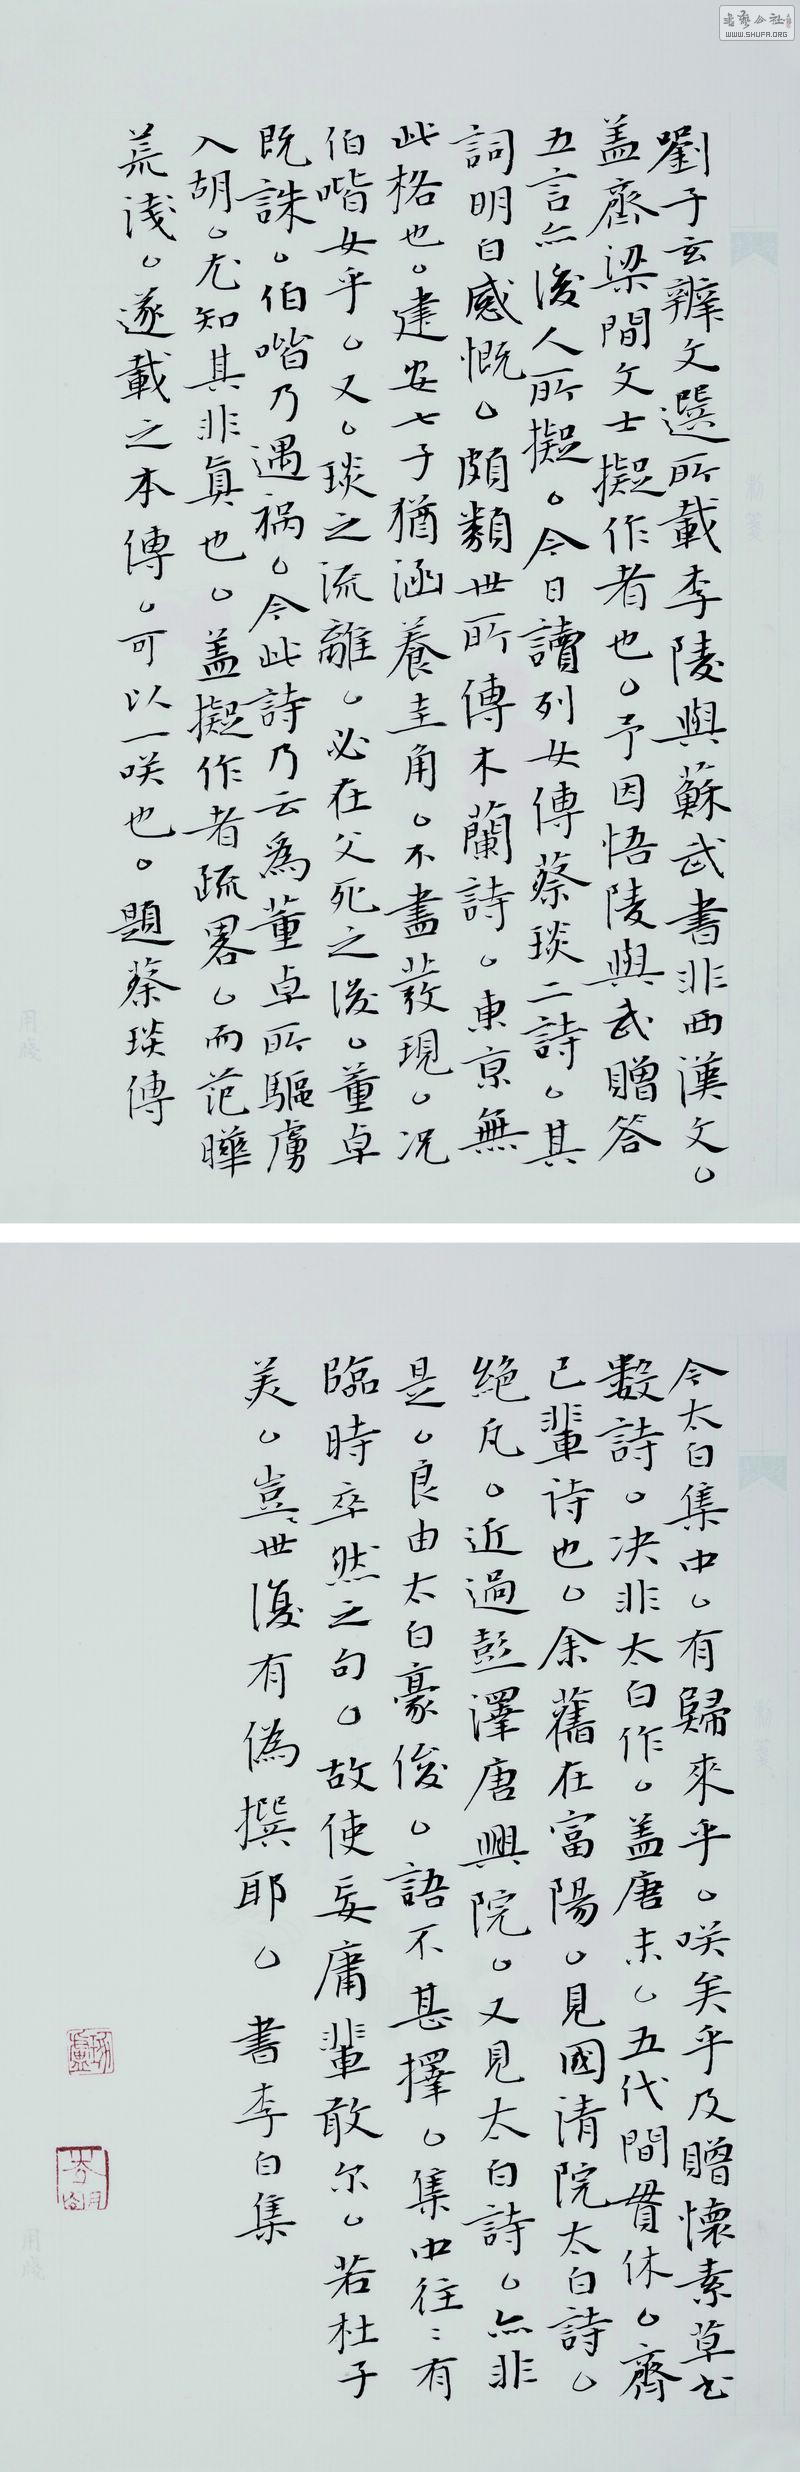 劉子玄辨文選所載李陵與蘇武書非西漢文。
盖齊梁間文士擬作者也。予因悟陵與武贈答
五言亦後人所擬。今日讀列女傳蔡琰二詩。其
詞明白感慨。頗類世所傳木蘭詩。東京無
此格也。建安七子猶涵養圭角。不盡發現。况
伯喈女乎。又。琰之流離。必在父死之後。董卓
既誅。伯喈乃遇祸。今此詩乃云為董卓所驅虜
入胡。尤知其非真也。盖擬作者疏畧。而范曄
荒淺。遂載之本傳。可以一咲也。題蔡琰傳
今太白集中。有歸來乎。咲矣乎及贈懷素草书
數詩。决非太白作。盖唐末。五代間貫休。齊
已輩诗也。余舊在富陽。見國清院太白詩。
絶凡。近過彭澤唐興院。又見太白詩。亦非
是。良由太白豪俊。語不甚擇。集中往〻有
臨時卒然之句。故使妄庸輩敢尔。若杜子
美。豈〻世復有偽撰耶。書李白集
書藝公社
WWW.SHUFA.ORG